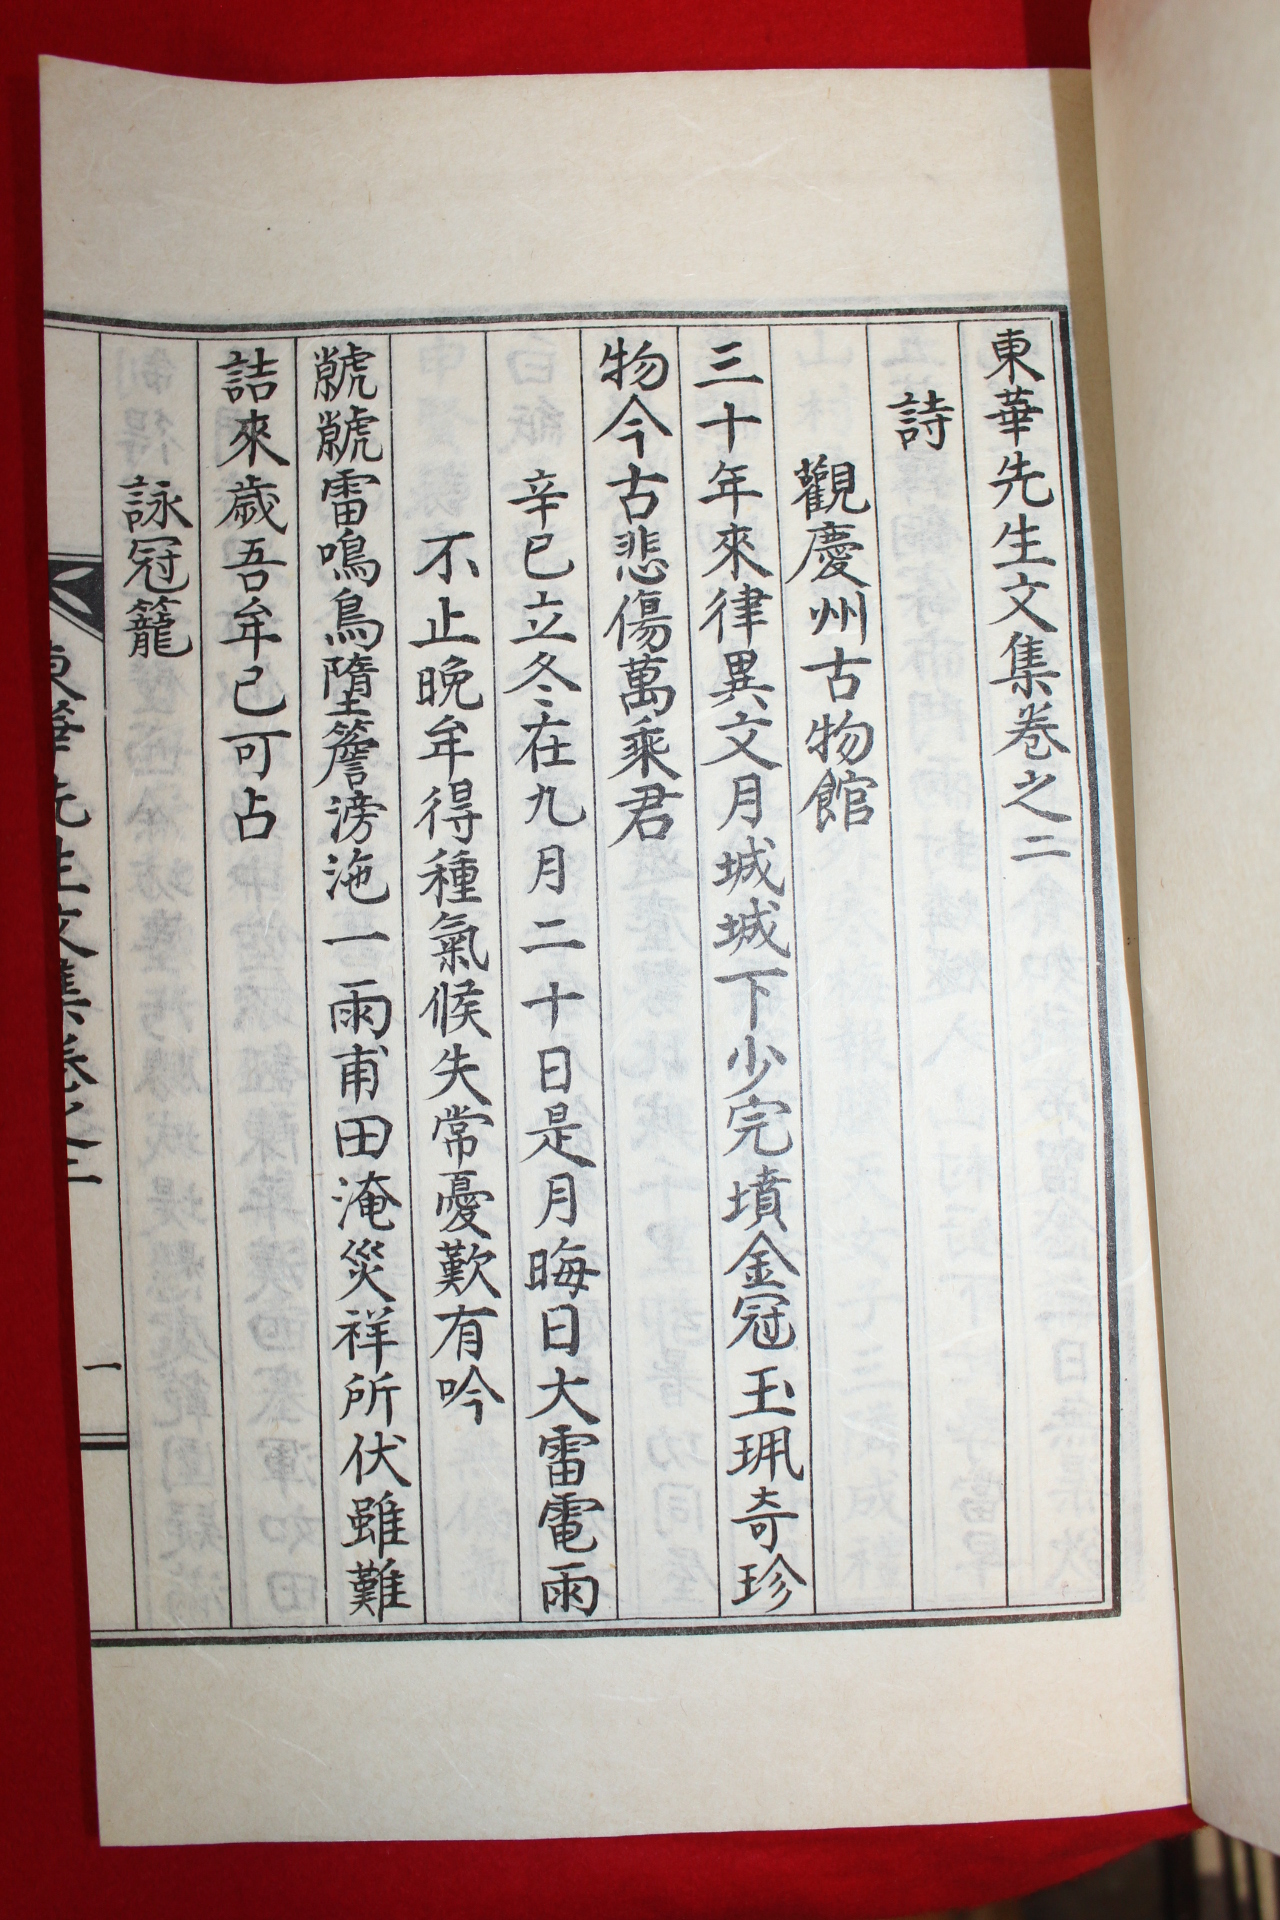 東華先生文集卷之二
詩
觀慶州古物館
三十年來律異文月城城下少完墳金冠玉珮奇珍
物今古悲傷萬乘君
辛巳立冬在九月二十日是月晦日大雷電雨
不止晚牟得種氣候失常憂歎有吟
虩虩雷鳴鳥墮簷滂沲一雨甫田淹災祥所伏雖難
詰來歲吾牟已可占
詠冠籠
東華先生文集卷之二
一